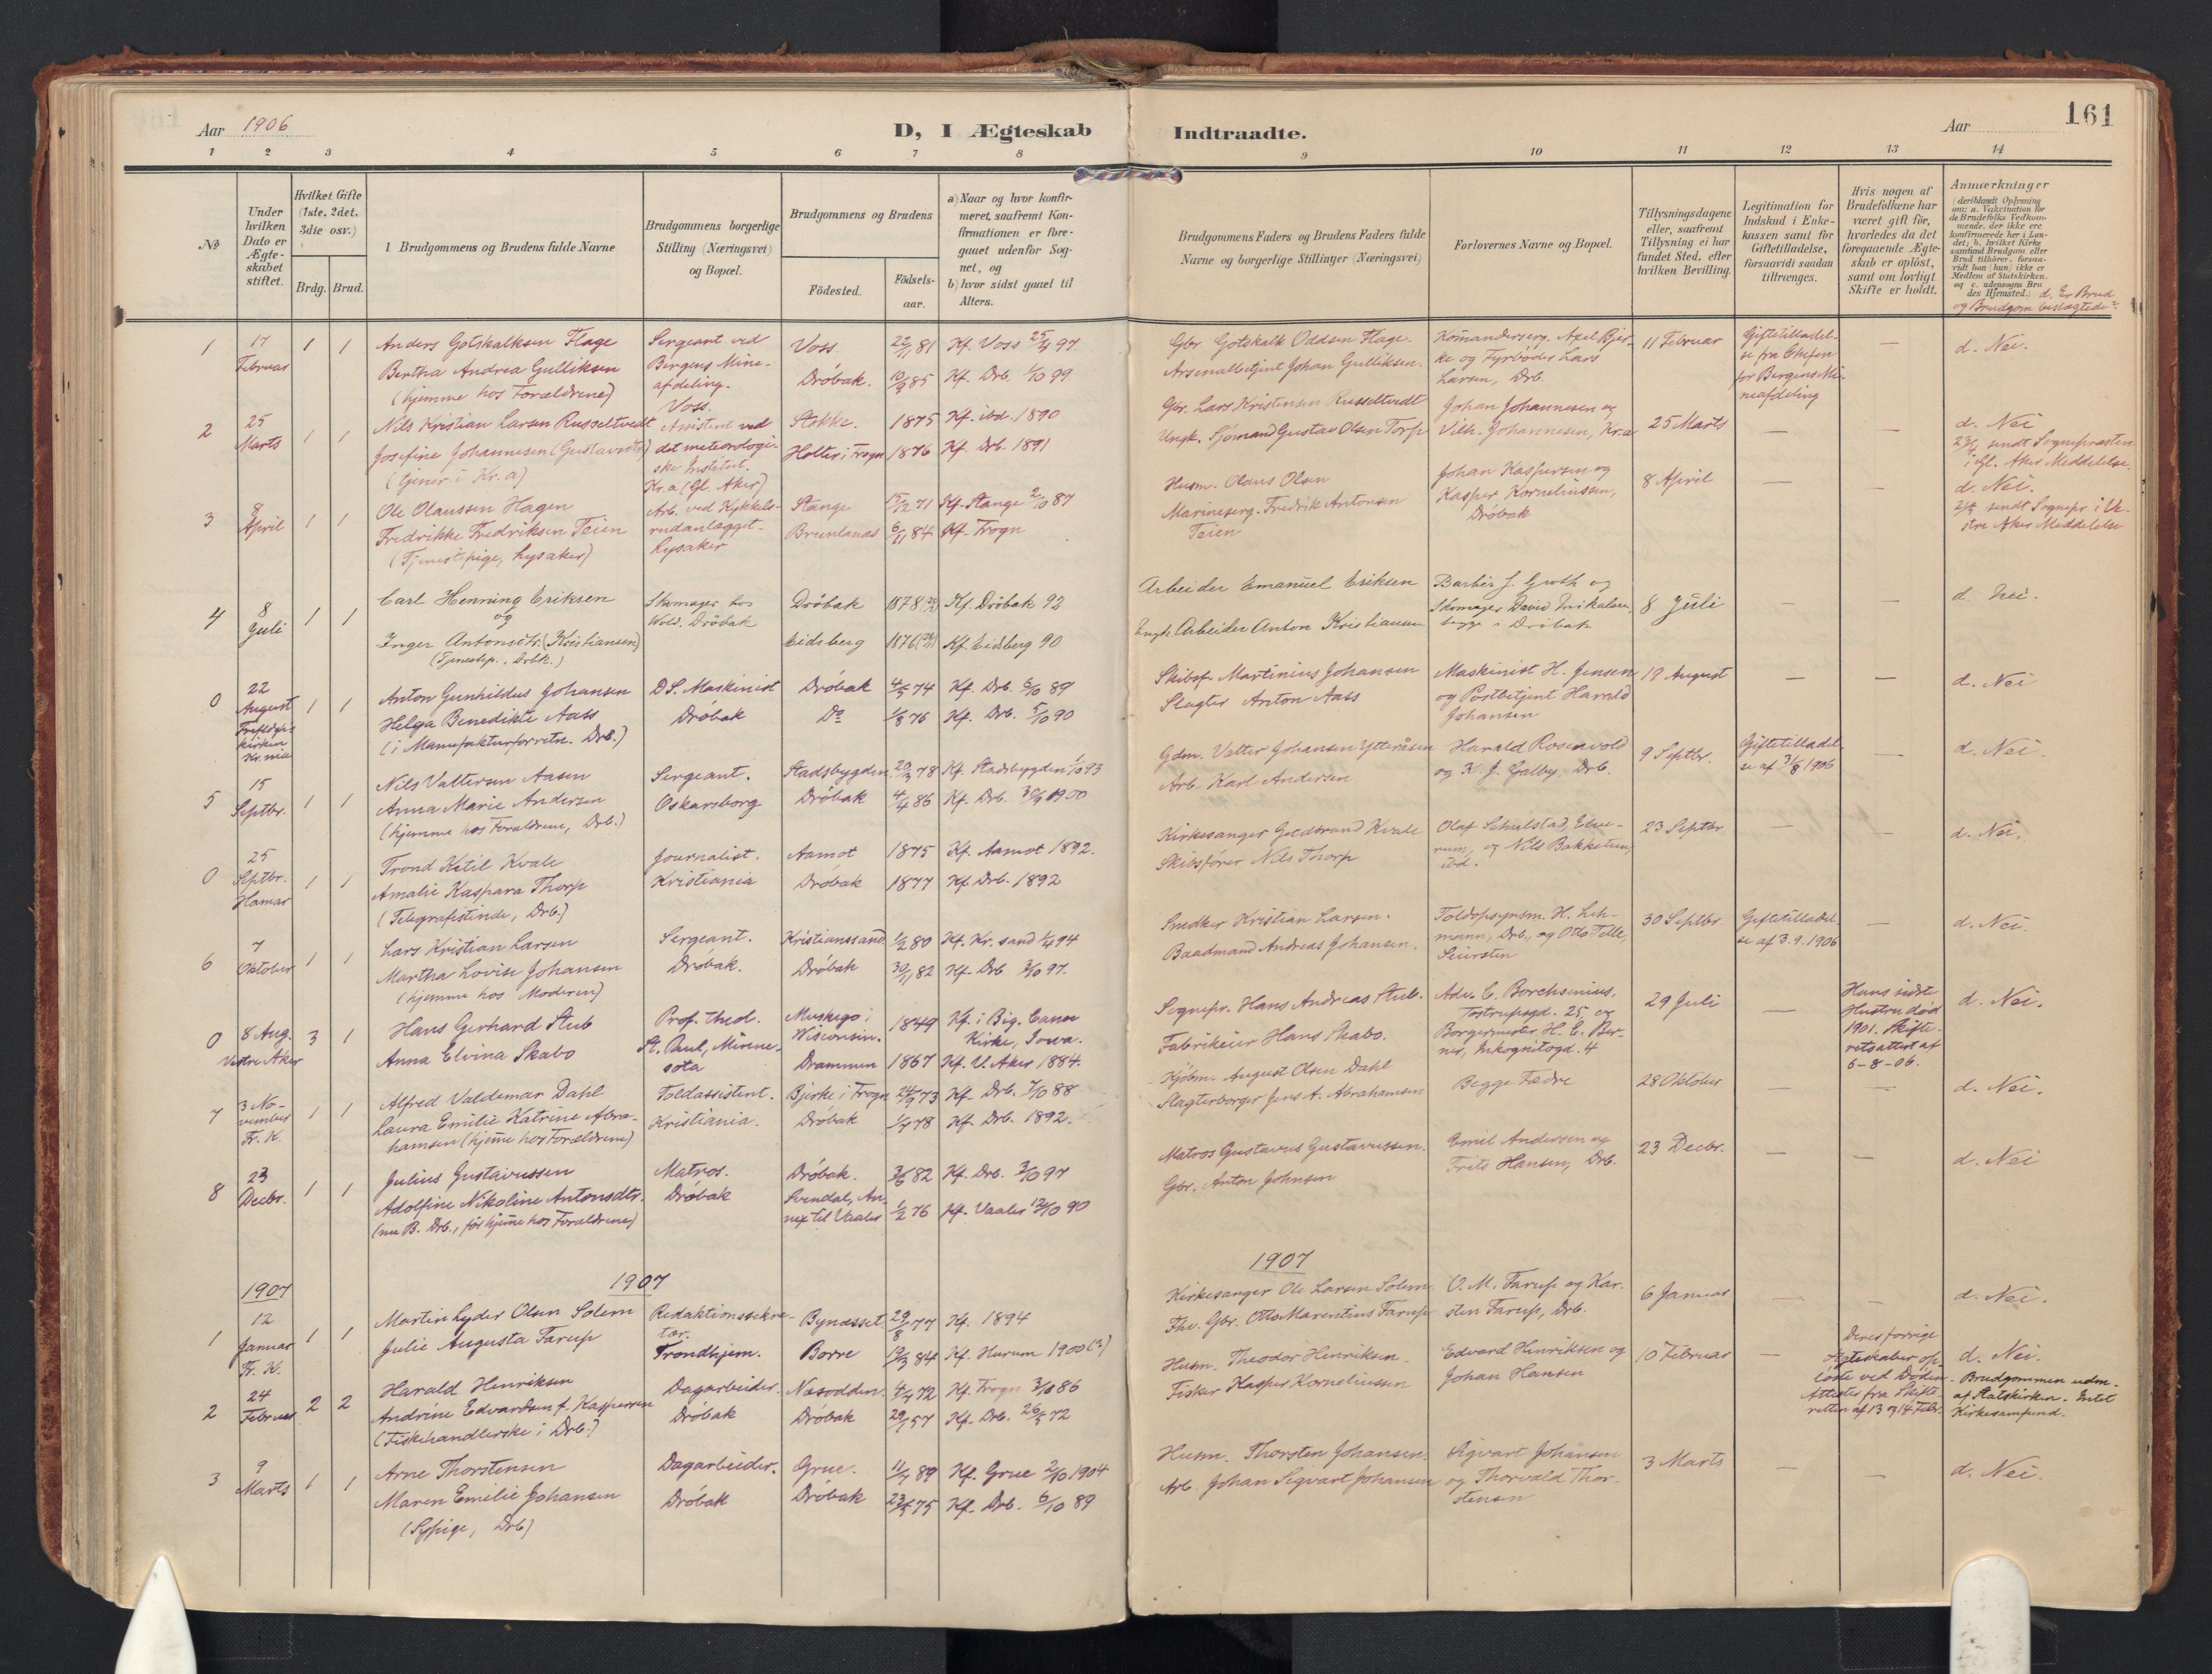 Aar 1906
D, I Ægteskab
Indtraadte.
Aar
161
1 2 3 4 5 6 7 8 9 10 11 12 13 14
No
Under hvilken Dato er Ægteskabet stiftet.
Hvilket Gifte (1ste, 2det, 3die osv.)
Brdg. Brud.
Brudgommens og Brudens fulde Navne
Brudgommens borgerlige Stilling (Næringsvei) og Bopæl.
Brudgommens og Brudens
Födested.
Födsels-aar.
a) Naar og hvor konfir-
meret, saafremt Kon-
firmationen er fore-
gaaet udenfor Sog-
net, og
b) hvor sidst gaaet til
Alters.
Brudgommens Faders og Brudens Faders fulde
Navne og borgerlige Stillinger (Næringsvei)
Forlovernes Navne og Bopæl.
Tillysningsdagene
eller, saafremt
Tillysning ei har
fundet Sted, efter
hvilken Bevilling.
Legitimation for
Indskud i Enke-
kassen samt for
Giftetilladelse,
forsaavidt saadan
tiltrænges.
Hvis nogen af
Brudefolkene har
været gift för,
hvorledes da det
foregaaende Ægte-
skab er oplöst,
samt om lovligt
Skifte er holdt.
Anmærkninger
(deriblandt Oplysning
om: a. Vaccination for
de Brudefolks Vedkom-
mende, der ikke ere
konfirmerede her i Lan-
det; b. hvilket Kirke-
samfund Brudgom eller
Brud tilhörer, forsaa-
vidt han (hun) ikke er
Medlem af Statskirken,
og c. udensogns Bru-
des Hjemsted.) d. Er Brud
og Brudgom beslægtede?
1 17 Februar 1 1
Anders Gotskalksen Flage
Bertha Andrea Gulliksen
(hjemme hos Forældrene)
Sergeant ved
Bergens Mine-
afdeling.
Voss.
Voss 22/11 81 Kf. Voss 25/4 97
Dröbak. 10/9 85 Kf. Drb. 1/10 99
Gbr. Gotskalk Oddsen Flage.
Arsenalbetjent Johan Gulliksen.
Komandersergj. Axel Bjer-
ke og Fyrböder Lars
Larsen, Drb.
11 Februar
Giftetilladel-
se fra Chefen
for Bergens Mi-
neafdeling
— d. Nei.
2 25 Marts 1 1
Nils Kristian Larsen Russeltvedt
Josefine Johannesen (Gustavsdtr.)
(tjener i Kr.a)
Assistent ved
det meteorologi-
ske Institut.
Kr.a (Gl. Aker)
Stokke. 1875 Kf. ibd. 1890
Holter i Frogn 1876 Kf. Drb. 1891
Gbr. Lars Kristensen Russeltvedt
Ungk. Sjömand Gustav Olsen Torp
Johan Johannesen og
Vilh. Johannesen, Kr.a
25 Marts — —
d. Nei
sendt Sognepræsten
i Gl. Aker Meddelelse.
3 8 April 1 1
Ole Olaussen Hagen
Fredrikke Fredriksen Teien
(Tjenestpige, Lysaker)
Arb. ved Kykkels-
rudanlægget.
Lysaker
Stange 15/12 71 Kf. Stange 2/10 87
Brunlanæs 6/11 84 Kf. Frogn
Husm. Olaus Olsen
Marineserg. Fredrik Antonsen
Teien
Johan Kaspersen og
Kasper Korneliussen,
Dröbak
8 April — —
d. Nei.
sendt Sognepr. i Ve-
stre Aker Meddelelse
4 8 Juli 1 1
Carl Henning Eriksen
og
Inger Antonsdtr. (Kristiansen)
(Tjenestep., Drbk.)
Skomager hos
Wold. Dröbak
Dröbak 1878 Kf. Dröbak 92
Eidsberg 1876 Kf. Eidsberg 90
Arbeider Emanuel Eriksen
Ungk. Arbeider Anton Kristiansen
Barber J. Groth og
Skomager David Mikalsen,
begge i Dröbak
8 Juli — —
d. Nei.
0 22 August
Kr.nia
1 1
Anton Gunhildus Johansen
Helga Benedikte Aass
(i Manufakturforretn. Drb.)
DS. Maskinist
Dröbak
Dröbak 4/5 74 Kf. Drb. 6/10 89
Do 1/8 76 Kf. Drb. 5/10 90
Skibsf. Martinius Johansen
Slagter Anton Aass
Maskinist H. Jensen
og Postbetjent Harald
Johansen
19 August — —
d. Nei
5 15 Septbr. 1 1
Nils Valtersen Aasen
Anna Marie Andersen
(hjemme hos Forældrene, Drb.)
Sergeant.
Oskarsborg
Stadsbygden 29/3 78 Kf. Stadsbygden 1/10 93
Dröbak 4/4 86 Kf. Drb. 30/9 1900
Gdm. Valter Johansen Ytteraasen
Arb. Karl Andersen
Harald Rosenvold
og K. J. Galby, Drb.
9 Septbr.
Giftetilladel-
se af 31/8 1906
— d. Nei
0 25 Septbr. Hamar 1 1
Trond Ketil Kvale
Amalie Kaspara Thorp
(Telegrafistinde, Drb.)
Journalist.
Kristiania
Aamot 1875 Kf. Aamot 1892.
Dröbak 1877 Kf. Drb. 1892
Kirkesanger Kvale
Skibsförer Nils Thorp
Olaf Schulstad, Elve-
rum, og Nils Bakketun,
ibd.
23 Septbr — —
d. Nei.
6 7 Oktober 1 1
Lars Kristian Larsen
Martha Lovise Johansen
(hjemme hos Moderen)
Sergeant.
Dröbak.
Kristianssand 1/2 80 Kf. Kr.sand 1/4 94
Dröbak 30/11 82 Kf. Drb 3/10 97.
Snedker Kristian Larsen.
Baadmand Andreas Johansen.
Toldopsynsm. H. Leh-
mann, Drb., og Otto Telle,
Seiersten
30 Septbr
Giftetilladel-
se af 3.9.1906
— d. Nei.
0 8 Aug. Vestre Aker 3 1
Hans Gerhard Stub
Anna Elvina Skabo
Prof. theol.
St. Paul, Minne-
sota
Muskego i
Wisconsin. 1849 Kf. i Big. Canoe
Kirke, Iowa.
Drammen 1867 Kf. V. Aker 1884.
Sognepr. Hans Andreas Stub.
Fabrikeier Hans Skabo.
Adv. C. Borchsenius,
Tostrupgd. 25, og
Borgermester H. E. Ber-
ner, Inkognitogd. 4
29 Juli —
Hans sidste
Hustru död
1901. Skifte-
retsattest af
6-8-06.
d. Nei.
7 3 No-
vember
Fr. K.
1 1
Alfred Valdemar Dahl
Laura Emilie Katrine Abra-
hamsen (hjeme hos Forældrene)
Toldassistent.
Kristiania.
Bjerke i Frogn 24/9 73 Kf. Drb. 7/10 88
Dröbak 1/4 78 Kf. Drb. 1892.
Kjöbm. August Olsen Dahl
Slagterborger Jens A. Abrahamsen
Begge Fædre
28 Oktober — —
d. Nei.
8 23 Decbr. 1 1
Julius Gustavussen
Adolfine Nikoline Antonsdtr.
(nu B. Drb., för hjeme hos Forældrene)
Matros.
Dröbak
Dröbak. 3/6 82 Kf. Drb. 3/10 97
Svendal, An-
nex til Vaaler 1/2 76 Kf. Vaaler 12/10 90
Matros Gustavus Gustavussen.
Gbr. Anton Johnsen
Emil Andersen og
Frits Hansen, Drb.
23 Decbr. — —
d. Nei
1907 1907 1907
1 12 Januar Fr. K. 1 1
Martin Lyder Olsen Solem
Julie Augusta Tarup
Redaktionssekre-
tær.
Trondhjem.
Bynæsset. 29/8 77 Kf. 1894
Borre 19/3 84 Kf. Hurum 1900 (?)
Kirkesanger Ole Larsen Solem
Fhv. Gbr. Otto Marentius Tarup
O. M. Tarup og Kar-
sten Tarup, Drb.
6 Januar — —
d. Nei.
2 24 Februar 2 2
Harald Henriksen
Andrine Edvardsen f. Kaspersen
(Fiskehandlerske i Drb.)
Dagarbeider.
Dröbak
Næsodden. 4/4 72 Kf. Frogn 3/10 86
Dröbak 29/1 57 Kf. Drb. 26/5 72
Husm. Theodor Henriksen.
Fisker Kasper Korneliussen
Edvard Henriksen og
Johan Hansen
10 Februar —
Deres forrige
Ægteskaber op-
löste ved Döden.
Attester fra Skifte-
retten af 13 og 14 Febr.
d. Nei.
Brudgommen udm.
af Statskirken. Intet
Kirkesamfund.
3 9 Marts 1 1
Arne Thorstensen
Maren Emilie Johansen
(Sypige, Drb)
Dagarbeider.
Dröbak
Grue. 11/7 89 Kf. Grue 2/10 1904
Dröbak 23/5 75 Kf. Drb. 6/10 89
Husm. Thorsten Johansen.
Arb. Johan Sigvart Johansen
Sigvart Johansen
og Thorvald Thor-
stensen
3 Marts — —
d. Nei.